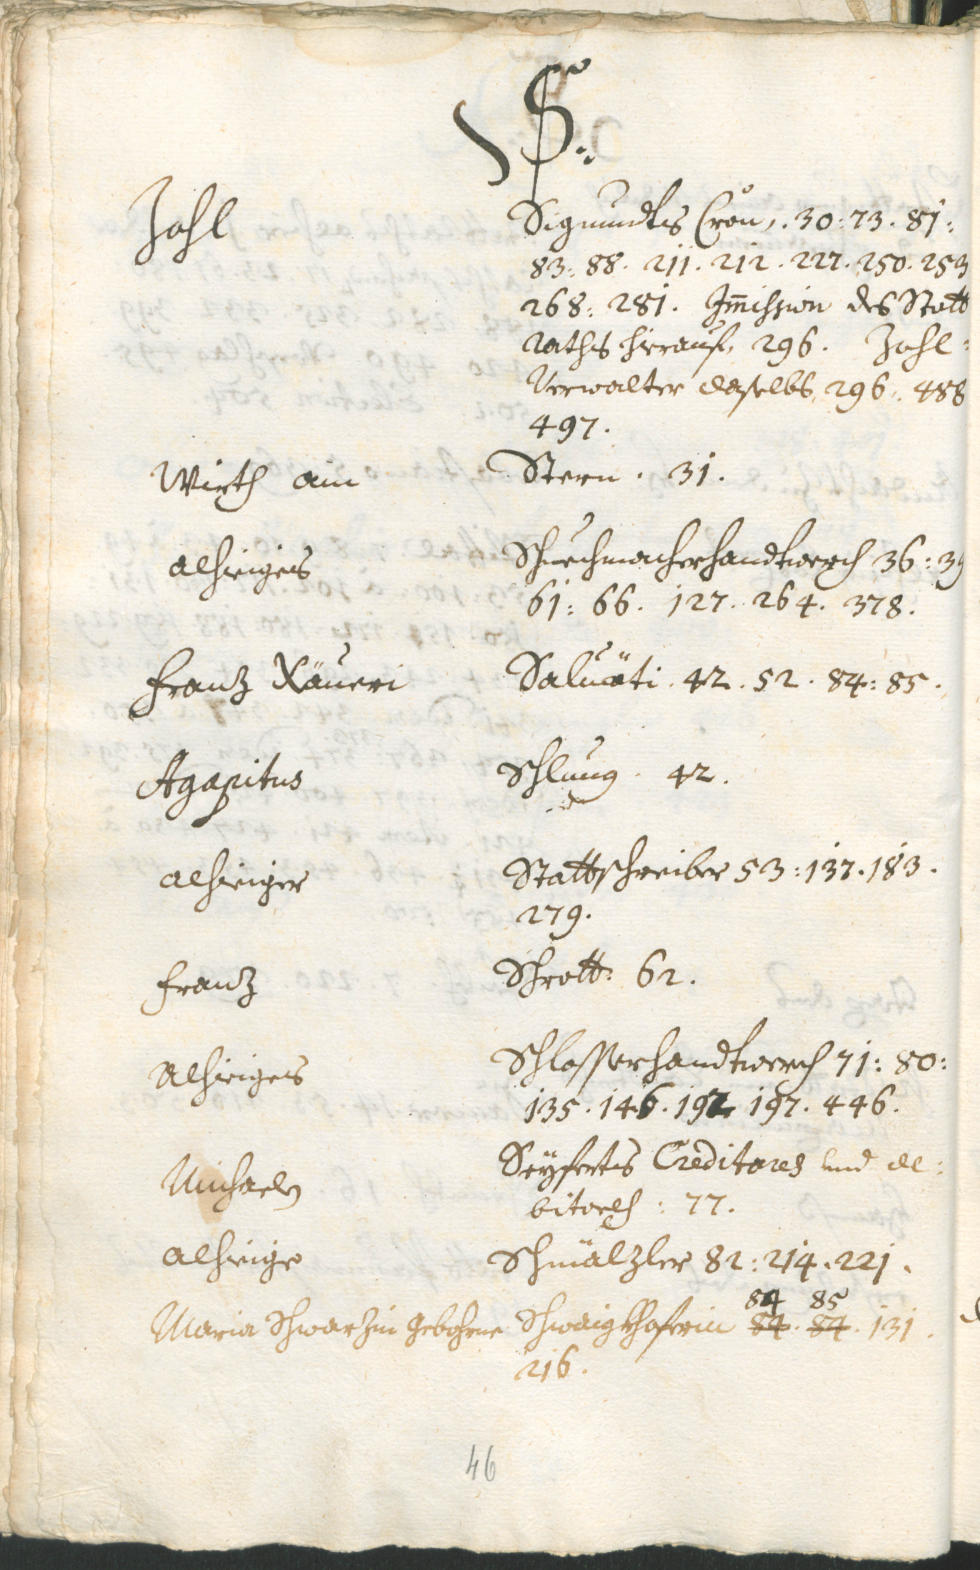 S.
Zohl Sigmundts Cron, 30: 73. 81:
83: 88. 211. 212. 227. 250. 253
268: 281. Im̅ission des Statt
raths hierauf, 296. Zohl:
Verwalter daselbs, 296: 488
497.
Wirth am Stern. 31.
alhieiges Schuechmacherhandtwerch 36: 39
61: 66. 127. 264. 378.
Franz Xäueri Saluäti 42. 52. 84: 85.
Agapitus Schlung. 42.
alhieiger Stattschreiber 53: 137. 183.
279.
Franz Schrott: 62.
Alhieiges Schlosserhandtwerch 71: 80:
135. 146. 192 197. 446.
Michaeln Seyferts Creditores und de:
bitorn: 77.
alhieige Schmälzler 82: 214. 221.
84 85
Maria Schwarzin gebohrne Schwaigkhoferin 84. 84. 131.
216.
46